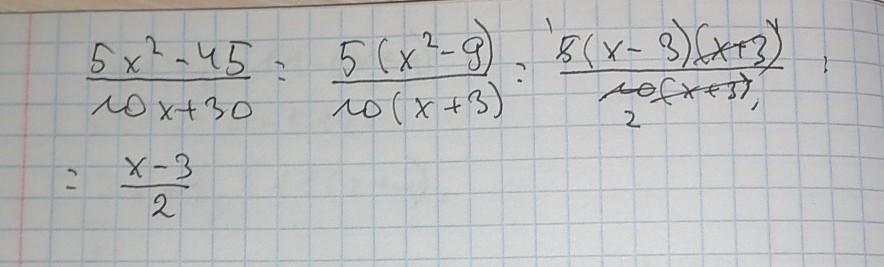 5x² - 45 / 10x + 30 = 5(x² - 9) / 10(x + 3) = 5(x - 3)(x + 3) / 10(x + 3) 1 2 =
= x - 3 / 2